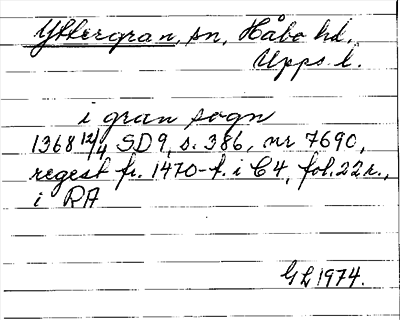 Yttergran, sn, Håbo hd,
Upps. l.
i gran sogn
1368 12/4 SD9, s. 386, nr 7690,
regest fr. 1470-t. i C4, fol. 22 r.,
i RA
GL 1974.